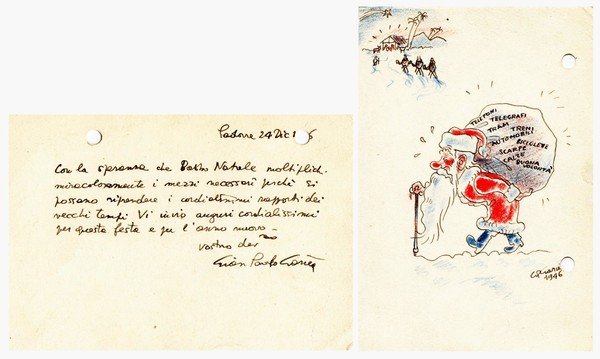 Padova 24 Dic 1 6
Con la speranza che Babbo Natale moltiplichi
miracolosamente i mezzi necessari perché si
possano riprendere i cordialissimi rapporti dei
vecchi tempi. Vi invio auguri cordialissimi
per questa festa e per l'anno nuovo
vostro dev
Gian Paolo
TELEFONI
TELEGRAFI
TRAM
TRENI
AUTOMOBILI
BICICLETTE
SCARPE
CALZE
BUONA
VOLONTÀ
1946